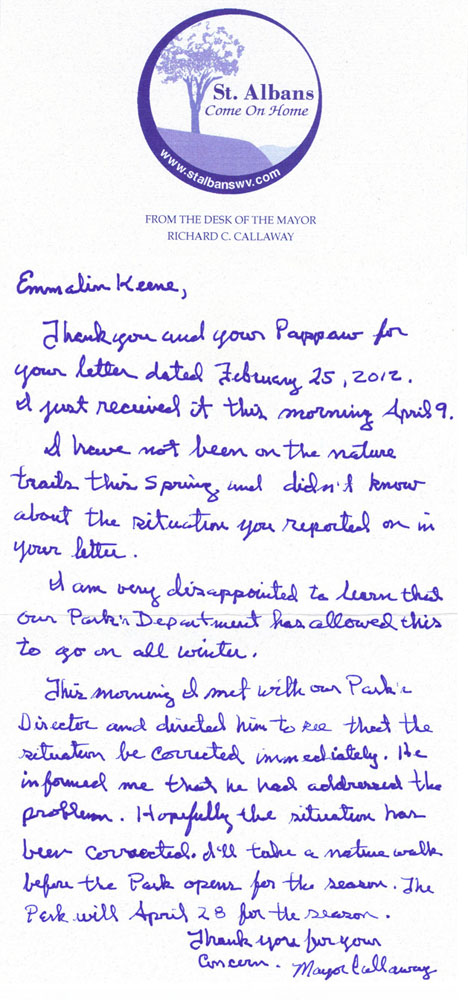 St. Albans
Come On Home
www.stalbanswv.com
FROM THE DESK OF THE MAYOR
RICHARD C. CALLAWAY
Emmalin Keene,
Thank you and your Pappaw for
your letter dated February 25, 2012.
I just received it this morning April 9.
I have not been on the nature
trails this Spring and didn't know
about the situation you reported on in
your letter.
I am very disappointed to learn that
our Park's Department has allowed this
to go on all winter.
This morning I met with our Park's
Director and directed him to see that the
situation be corrected immediately. He
informed me that he had addressed the
problem. Hopefully the situation has
been corrected. I'll take a nature walk
before the Park opens for the season. The
Park will April 28 for the season.
Thank you for your
Concern. Mayor Callaway